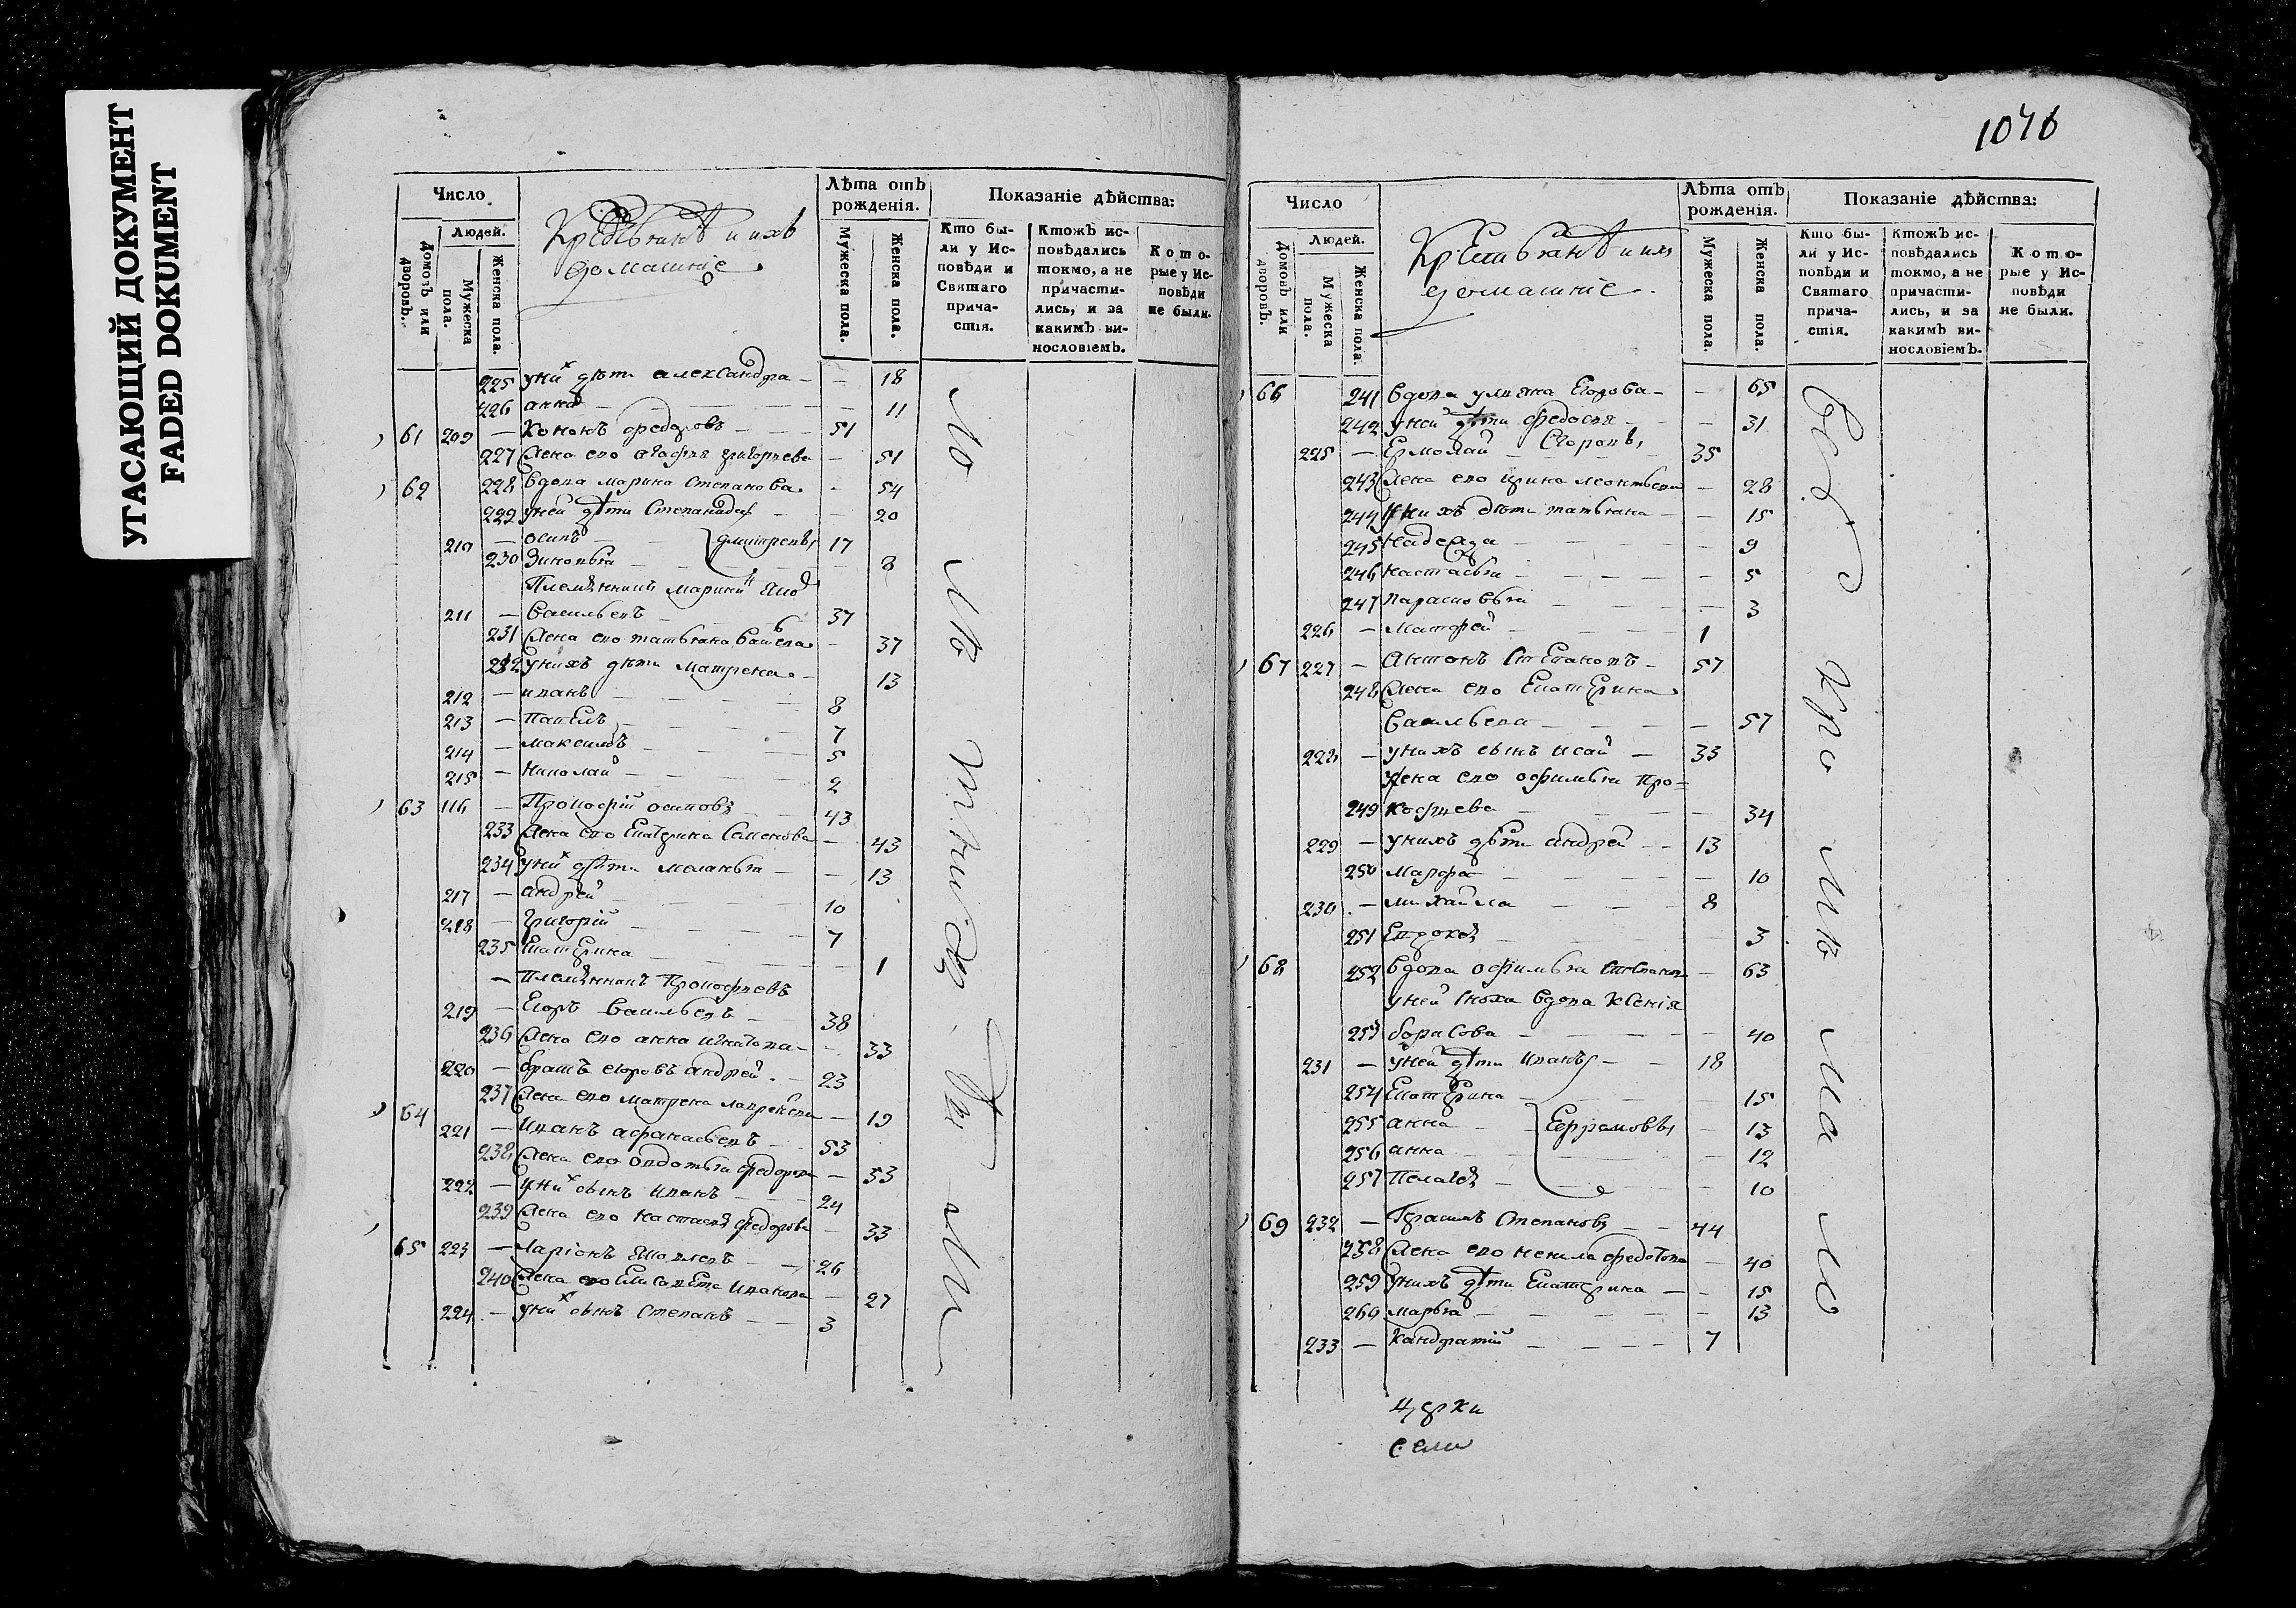 УГАСАЮЩИЙ ДОКУМЕНТ
FADED DOKUMENT
Число
Людей.
Домовъ или дворовъ.
Мужеска пола.
Женска пола.
Крестьянѣ и ихъ
домашніе
Лѣта отъ рожденія.
Мужеска пола.
Женска пола.
Показаніе дѣйства:
Кто были у Исповѣди и Святаго причастія.
Ктожъ исповѣдались токмо, а не причастились, и за какимъ винословіемъ.
Которые у Исповѣди не были.
225 у них дѣти александра — — 18
226 анна — — 11
61 209 — Кононъ федоровъ — 51
227 Жена ево агафия григорьева — 51
62 228 вдова марина Степанова — 54
229 у ней дѣти Степанида — — 20
210 — осипъ — дмитревы 17
230 Зиновья — — 8
Племянникъ марины яко
211 — васильевъ — 37
231 Жена ево татьяна — 37
232 у нихъ дѣти матрена — 13
212 — иванъ — 8
213 — Павелъ — 7
214 — максимъ — 5
215 — николай — 2
63 116 — Прокофій осиповъ 43
233 Жена ево Екатерина Семенова — 43
234 у них дѣти меланья — — 13
217 — андрей — 10
218 — григорій — 7
235 Екатерина — — 1
— племянникъ Прокофьевъ
219 — Егоръ васильевъ — 38
236 Жена ево анна игнатова — 33
220 — братъ егоровъ андрей . — 23
237 Жена ево матрена лаврентева — 19
64
221 — иванъ афанасьевъ — 53
238 Жена ево авдотья федорова — 53
222 — у них сынъ иванъ — 24
239 Жена ево настасья федорова — 33
65 223 — ларіонъ — 26
240 Жена ево Елисавета иванова — 27
224 — у них сынъ Степанъ — — 3
1076
Число
Людей.
Домовъ или дворовъ.
Мужеска пола.
Женска пола.
Крестьянѣ и ихъ
домашніе.
Лѣта отъ рожденія.
Мужеска пола.
Женска пола.
Показаніе дѣйства:
Кто были у Исповѣди и Святаго причастія.
Ктожъ исповѣдались токмо, а не причастились, и за какимъ винословіемъ.
Которые у Исповѣди не были.
66 241 вдова ульяна Егорова — — 65
242 у ней дѣти федосья — 31
225 — Ермолай Егоровы 35
243 Жена ево ирина леонтьева — 28
244 у нихъ дѣти татьяна — — 15
245 надежда — — 9
246 настасья — — 5
247 парасковья — — 3
226 — матфей — 1
67 227 — антонъ Степановъ — 57
248 Жена ево Екатерина
васильева — — 57
228 — у нихъ сынъ исай — 33
Жена ево офимья Про-
249 кофиева — — 34
229 — у нихъ дѣти андрей — 13
250 марфа — — 10
230 — михайла — 8
251 — 3
68 252 вдова офимья степанова — 63
у ней сноха вдова Ксенія
253 борисова — — 40
231 — у ней дѣти иванъ — — 18
254 Екатерина — — 15
255 анна — Ефремовы — 13
256 анна — — 12
257 Пелагея — — 10
69 232 — Герасимъ Степановъ — — 44
258 Жена ево ненила федотова — 40
259 у нихъ дѣти Екатерина — — 15
260 марья — — 13
233 — кандратій — 7
церкви
села